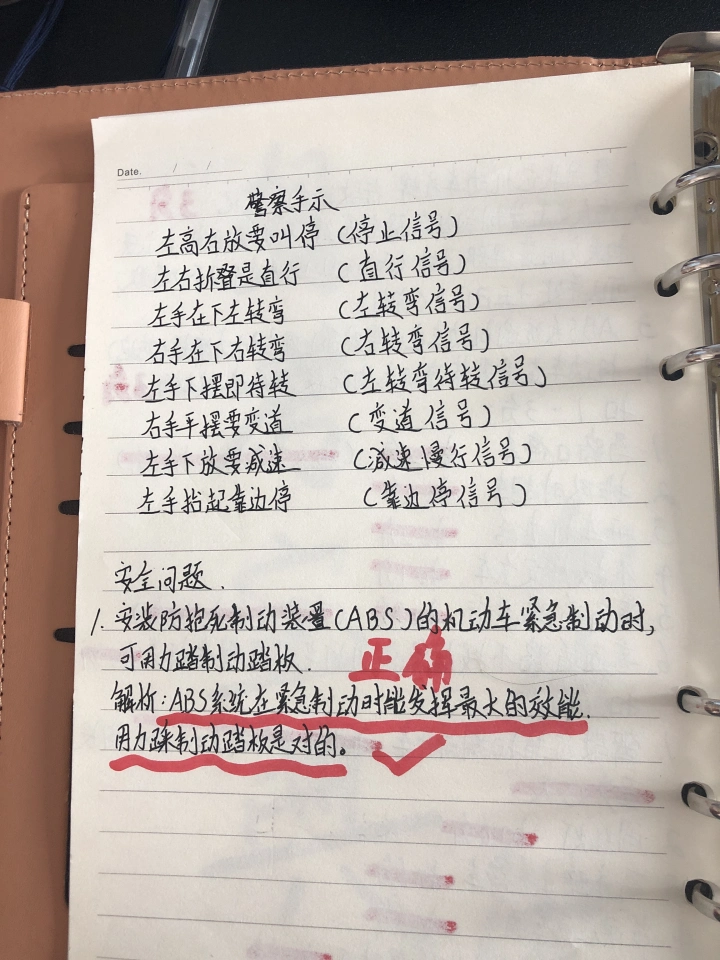 Date. / /
警察手示
左高右放要叫停 (停止信号)
左右折叠是直行 (直行信号)
左手在下左转弯 (左转弯信号)
右手在下右转弯 (右转弯信号)
左手下摆即待转 (左转弯待转信号)
右手平摆要变道 (变道信号)
左手下放要减速 (减速慢行信号)
左手抬起靠边停 (靠边停信号)
安全问题.
1. 安装防抱死制动装置(ABS)的机动车紧急制动时,
可用力踏制动踏板. 正确
解析:ABS系统在紧急制动时能发挥最大的效能.
用力踩制动踏板是对的。